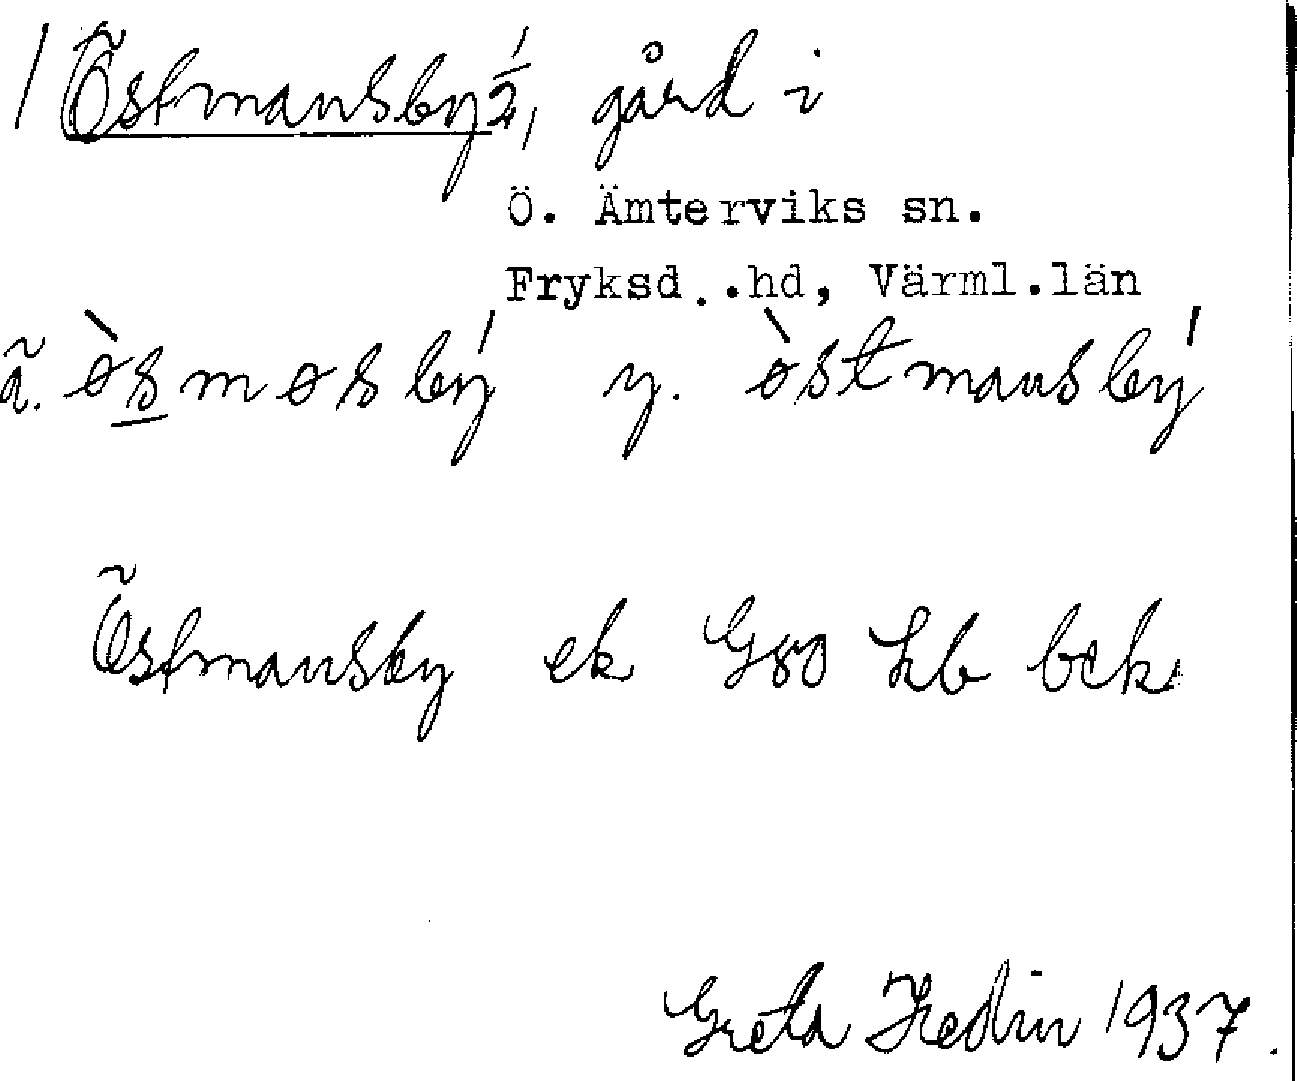 / Östmansby ½, gård i
Ö. Ämterviks sn.
Fryksd..hd, Värml.län
ä. òsmosbý y. òstmansbý
Östmansby ek G80 hb bek
Greta Hedin 1937.